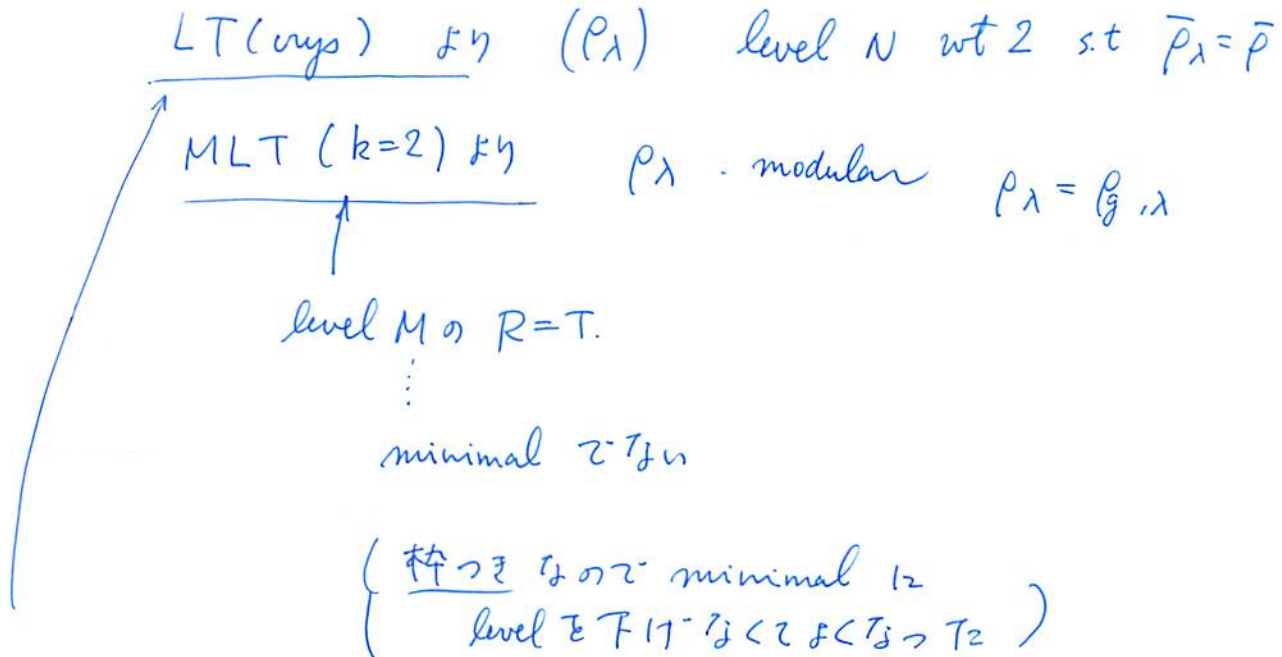 LT(crys) より (ρ_λ) level N wt 2 s.t ρ̄_λ = ρ̄
MLT (k=2) より ρ_λ : modular ρ_λ = ρ_{g,λ}
level M の R=T.
⋮
minimal でない
( 枠つき なので minimal に
level を下げなくてよくなった )